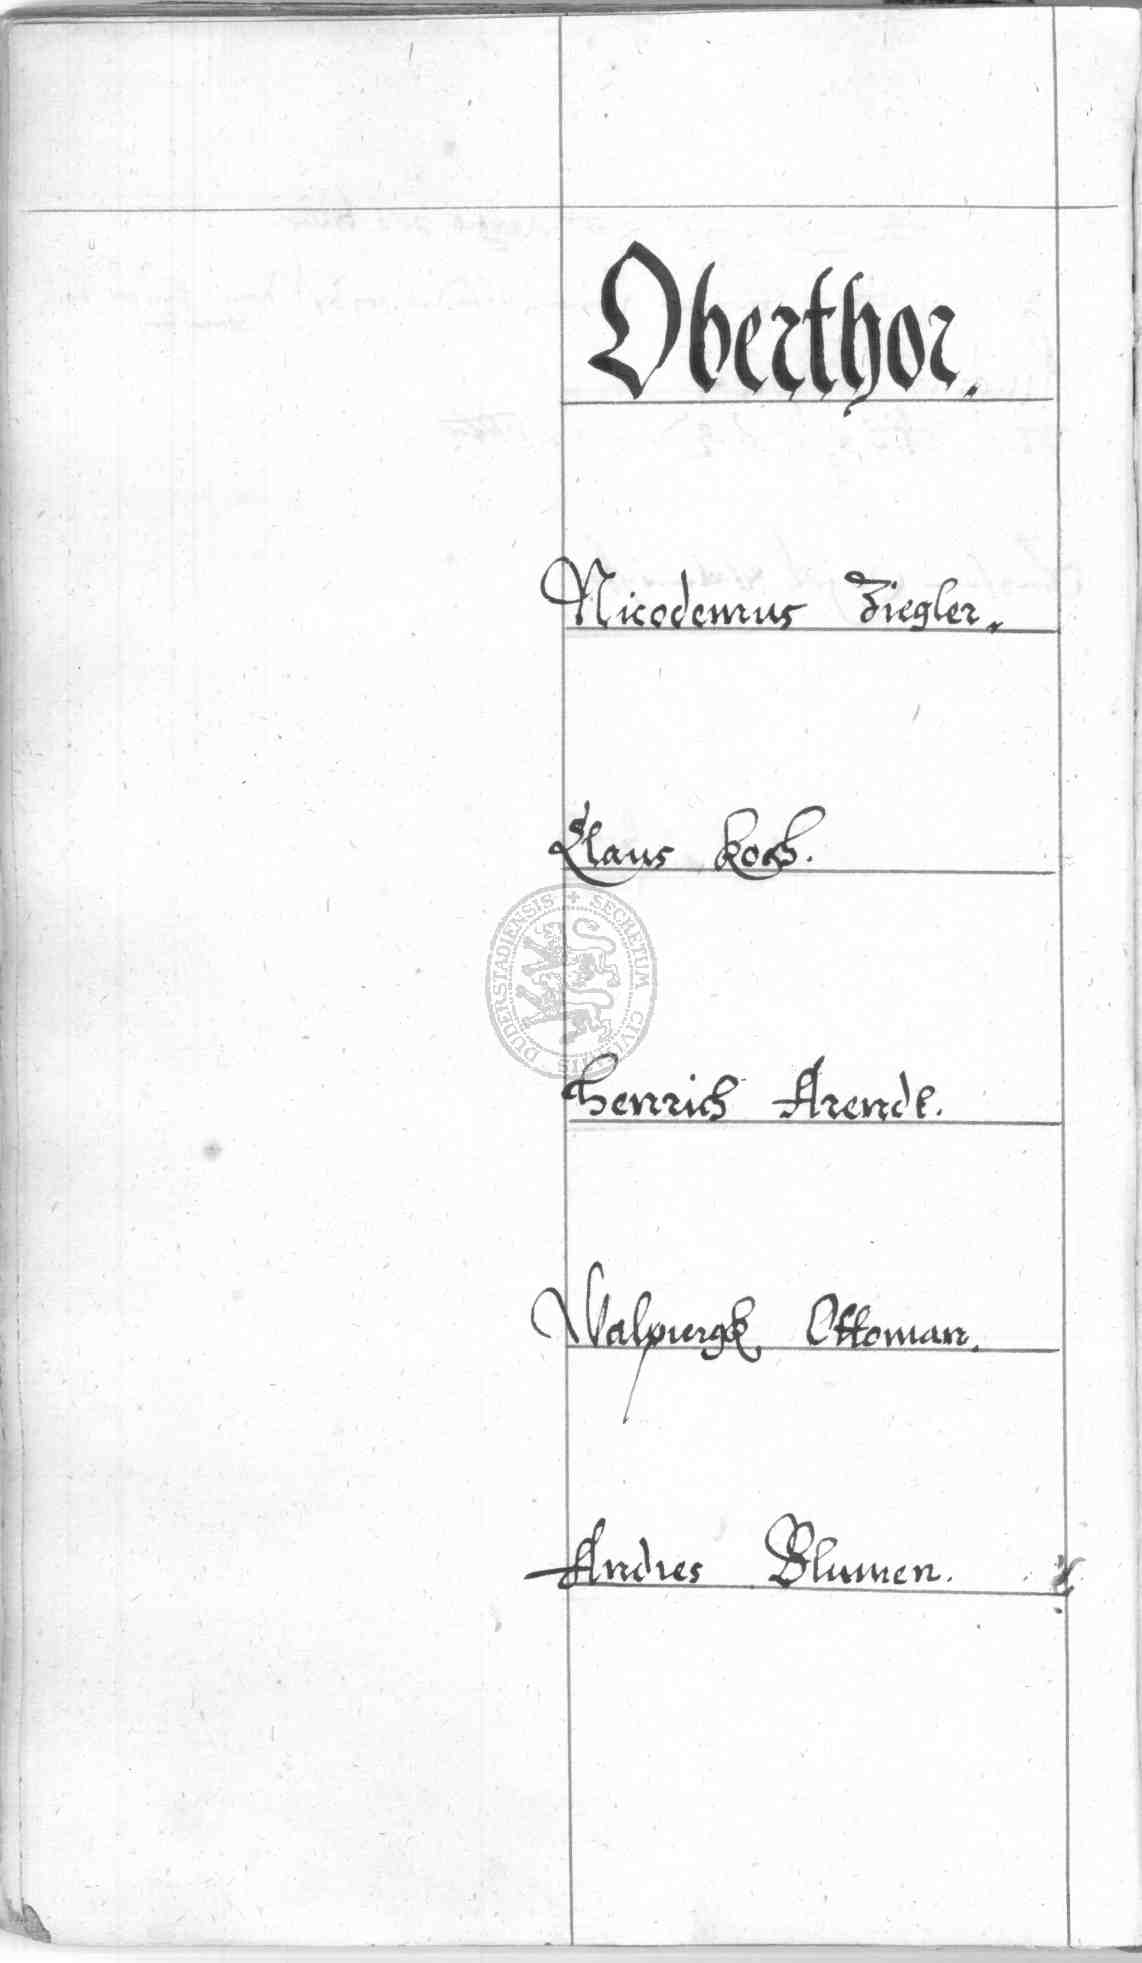 Oberthor.
Nicodemus Ziegler.
Claus Koch.
DUDERSTADIENSIS + SECRETUM CIVITATIS
Henrich Arendt.
Walpurgk Ottoman.
Andres Blumen.